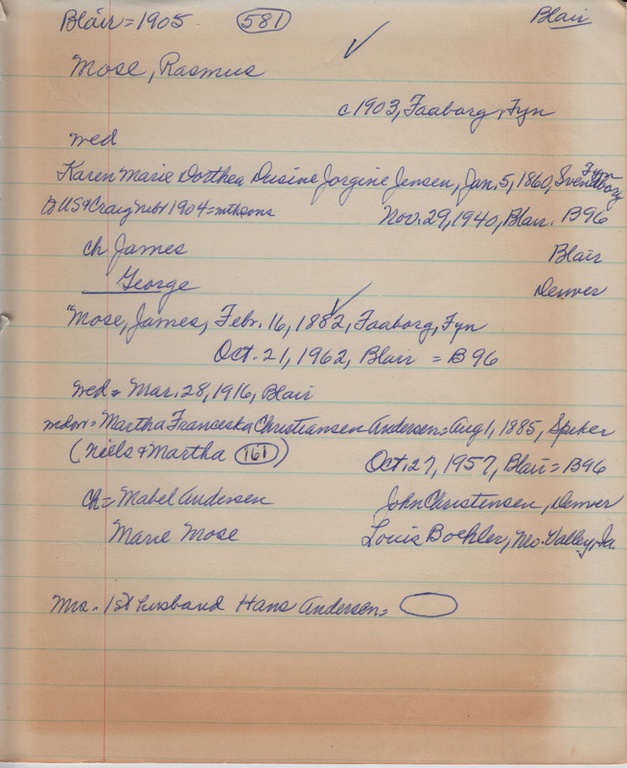 Blair = 1905 581 Blair
Mose, Rasmus
c 1903, Faaborg, Fyn
wed
Karen Marie Dorthea Jorgine Jensen, Jan. 5, 1860, Svendborg Fyn
to US & Craig Nebr 1904 = Nov. 29, 1940, Blair. B96
ch James Blair
George Denver
Mose, James, Febr. 16, 1882, Faaborg, Fyn
Oct. 21, 1962, Blair = B96
wed = Mar. 28, 1916, Blair
Martha Franceska Christiansen Andersen = Aug 1, 1885, Spiker
(Niels & Martha 161) Oct. 27, 1957, Blair = B96
ch = Mabel Andersen John Christensen, Denver
Marie Mose Louis Boehler, Mo. Valley, Ia.
Mrs. 1st husband Hans Andersen =